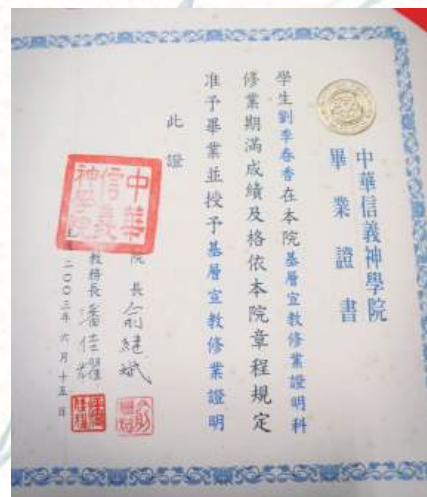 中華信義神學院
畢業證書
學生劉李春香在本院基層宣教修業證明科
修業期滿成績及格依本院章程規定
准予畢業並授予基層宣教修業證明
此證
院長 俞繼斌
教務長 潘佳耀
二〇〇三年六月十五日
中華信義神學院